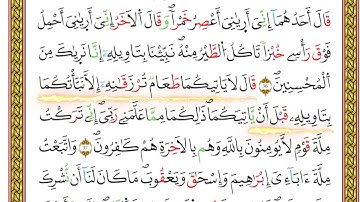 قَالَ أَحَدُهُمَا إِنِّي أَرَىٰنِي أَعْصِرُ خَمْرًا وَقَالَ الْآخَرُ إِنِّي أَرَىٰنِي أَحْمِلُ
فَوْقَ رَأْسِي خُبْزًا تَأْكُلُ الطَّيْرُ مِنْهُ نَبِّئْنَا بِتَأْوِيلِهِ إِنَّا نَرَىٰكَ مِنَ
الْمُحْسِنِينَ ۝٣٦ قَالَ لَا يَأْتِيكُمَا طَعَامٌ تُرْزَقَانِهِ إِلَّا نَبَّأْتُكُمَا
بِتَأْوِيلِهِ قَبْلَ أَنْ يَأْتِيَكُمَا ذَٰلِكُمَا مِمَّا عَلَّمَنِي رَبِّي إِنِّي تَرَكْتُ
مِلَّةَ قَوْمٍ لَا يُؤْمِنُونَ بِاللَّهِ وَهُمْ بِالْآخِرَةِ هُمْ كَافِرُونَ ۝٣٧ وَاتَّبَعْتُ
مِلَّةَ آبَاءِي إِبْرَاهِيمَ وَإِسْحَٰقَ وَيَعْقُوبَ مَا كَانَ لَنَا أَنْ نُشْرِكَ